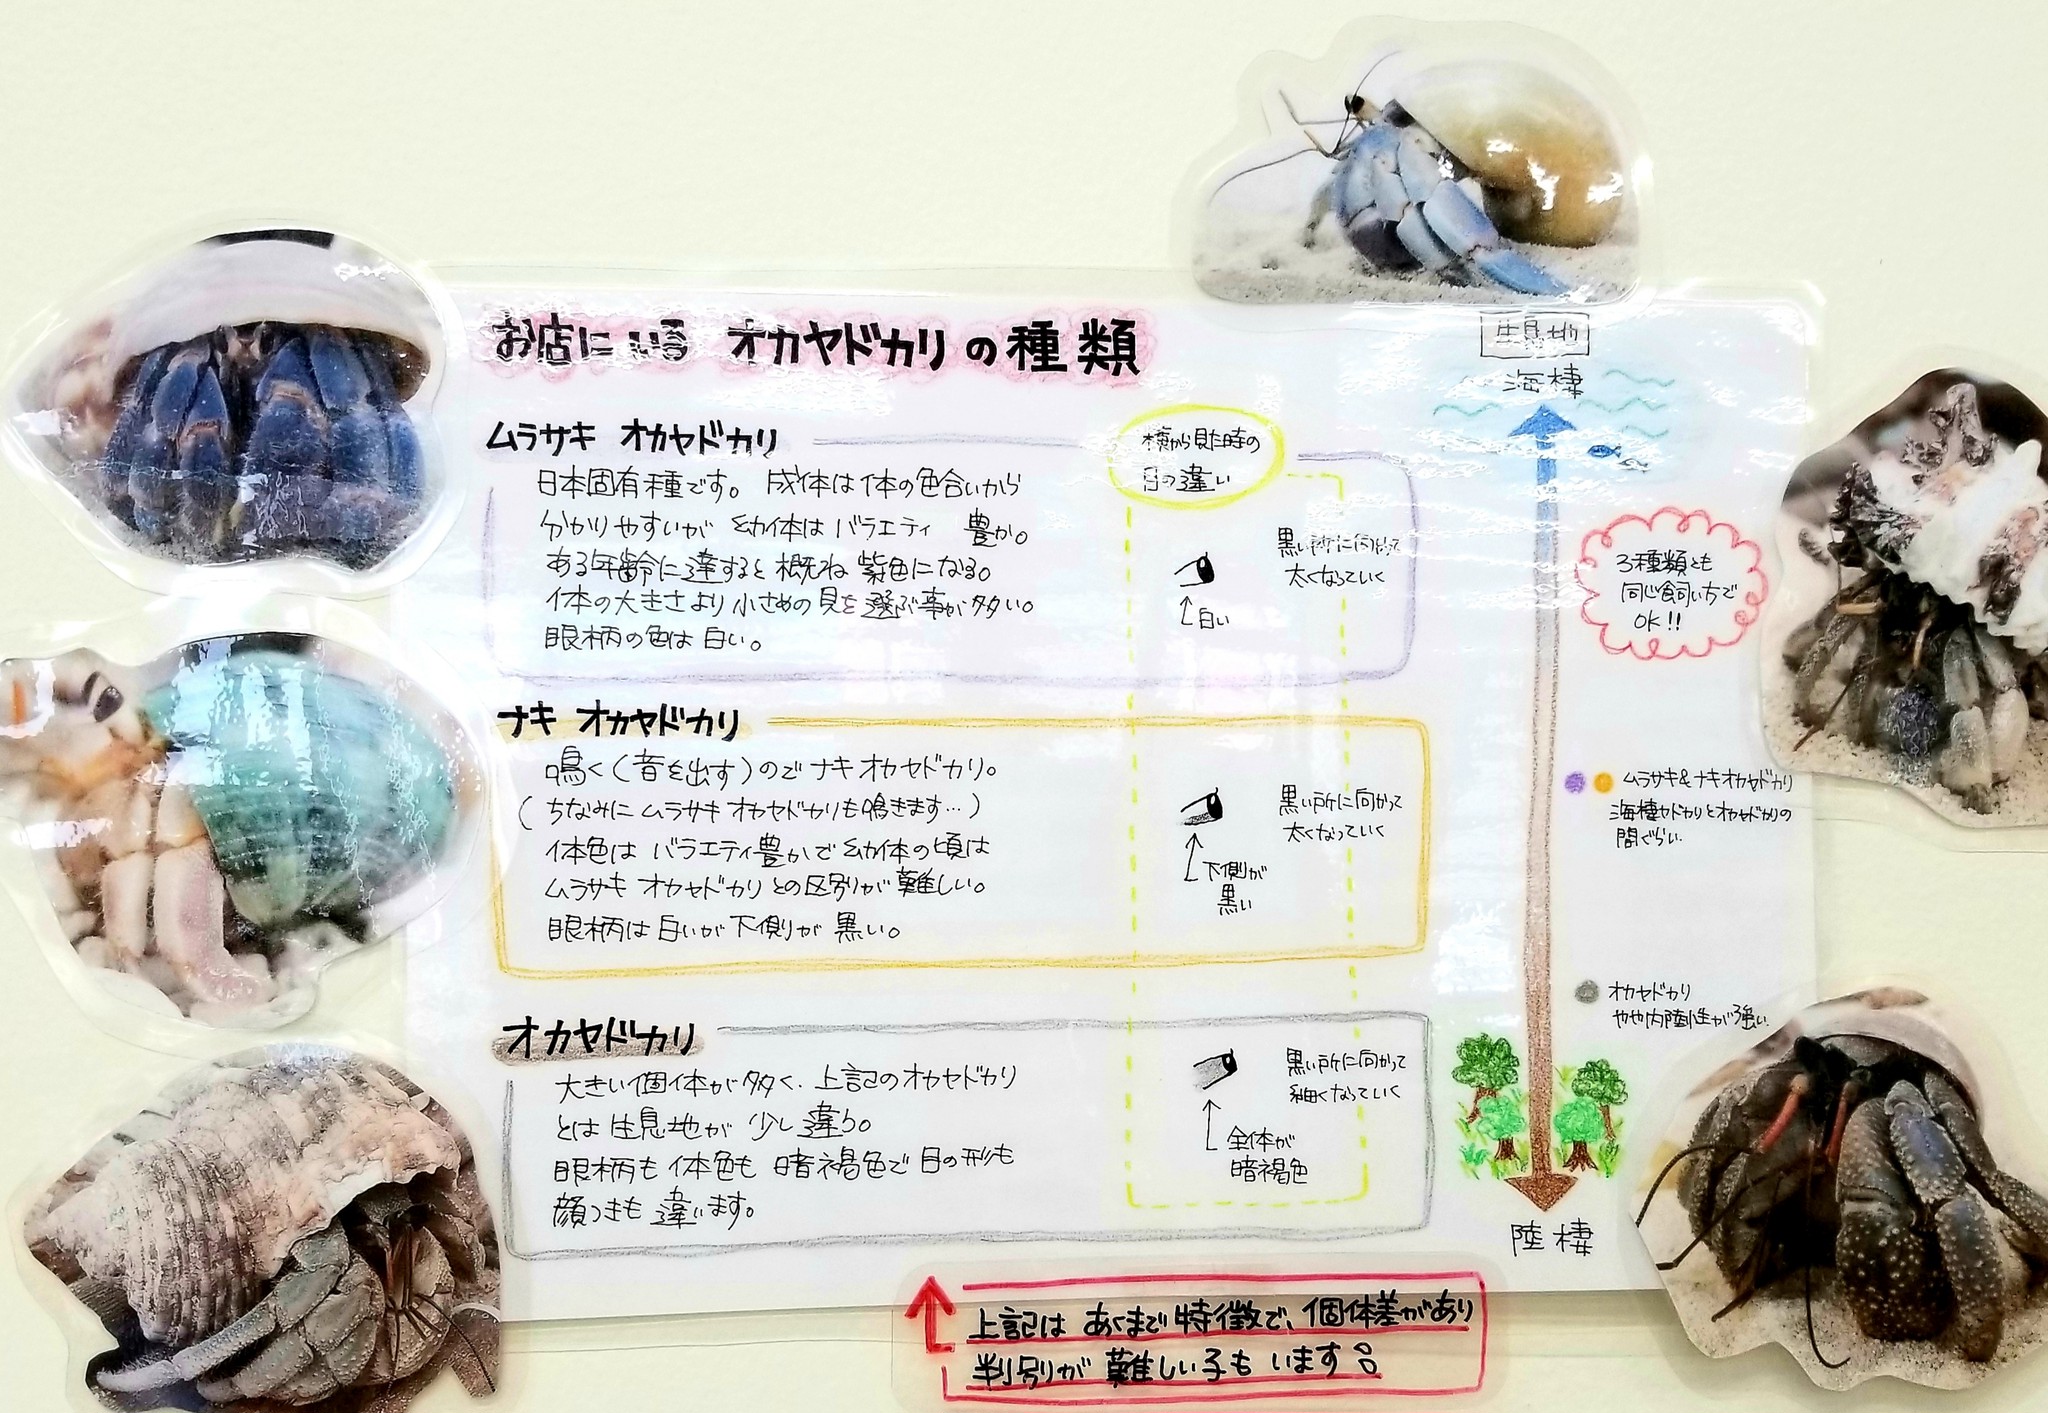 お店にいる オカヤドカリの種類
ムラサキ オカヤドカリ
日本固有種です。 成体は体の色合いから
分かりやすいが 幼体はバラエティ 豊か。
ある年齢に達すると概ね紫色になる。
体の大きさより小さめの貝を選ぶ事が多い。
眼柄の色は白い。
横から見た時の
目の違い
黒い所に向かって
太くなっていく
白い
ナキ オカヤドカリ
鳴く(音を出す)のでナキオカヤドカリ。
(ちなみにムラサキオカヤドカリも鳴きます…)
体色は バラエティ豊かで幼体の頃は
ムラサキ オカヤドカリとの区別が難しい。
眼柄は白いが下側が黒い。
黒い所に向かって
太くなっていく
下側が
黒い
オカヤドカリ
大きい個体が多く、上記のオカヤドカリ
とは生息地が少し違う。
眼柄も体色も暗褐色で目の形も
顔つきも違います。
黒い所に向かって
細くなっていく
全体が
暗褐色
生息地
海棲
3種類とも
同じ飼い方で
OK!!
ムラサキ&ナキオカヤドカリ
海棲ヤドカリとオカヤドカリの
間ぐらい.
オカヤドカリ
やや内陸性が強い.
陸棲
上記はあくまで特徴で、個体差があり
判別が難しい子もいます。